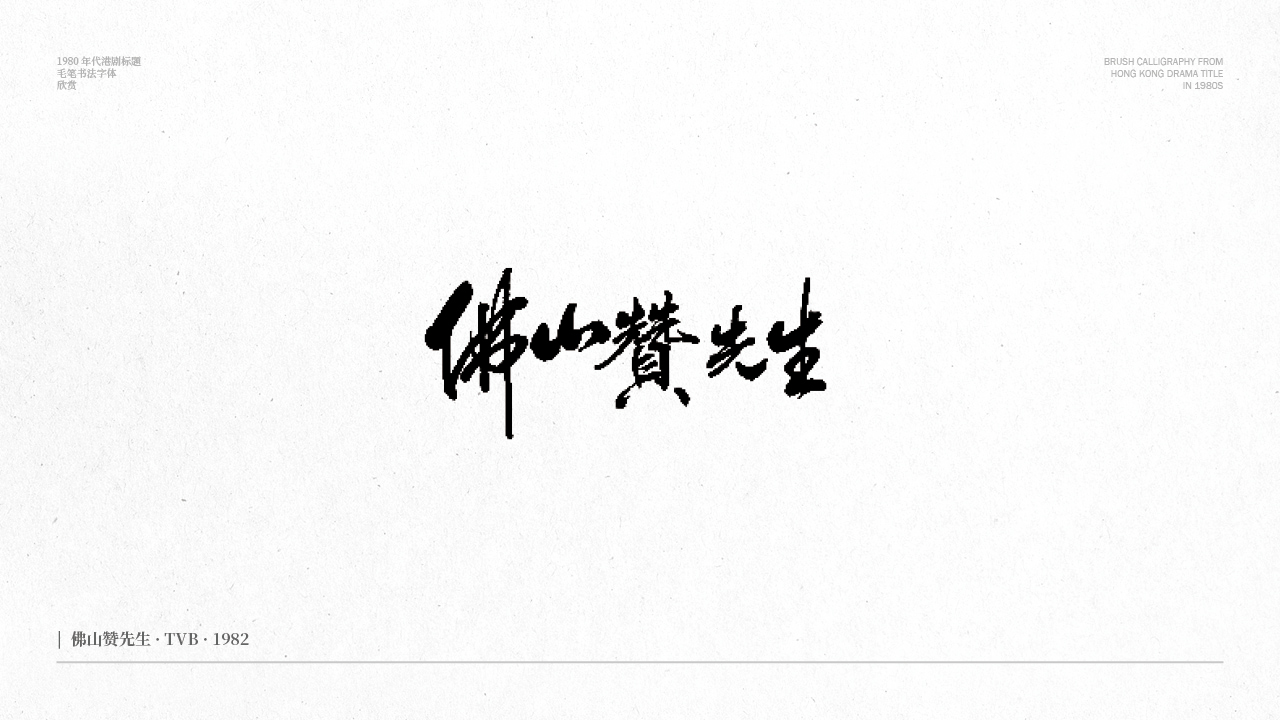 1980 年代港剧标题
毛笔书法字体
欣赏
BRUSH CALLIGRAPHY FROM
HONG KONG DRAMA TITLE
IN 1980S
佛山贊先生
| 佛山赞先生 · TVB · 1982